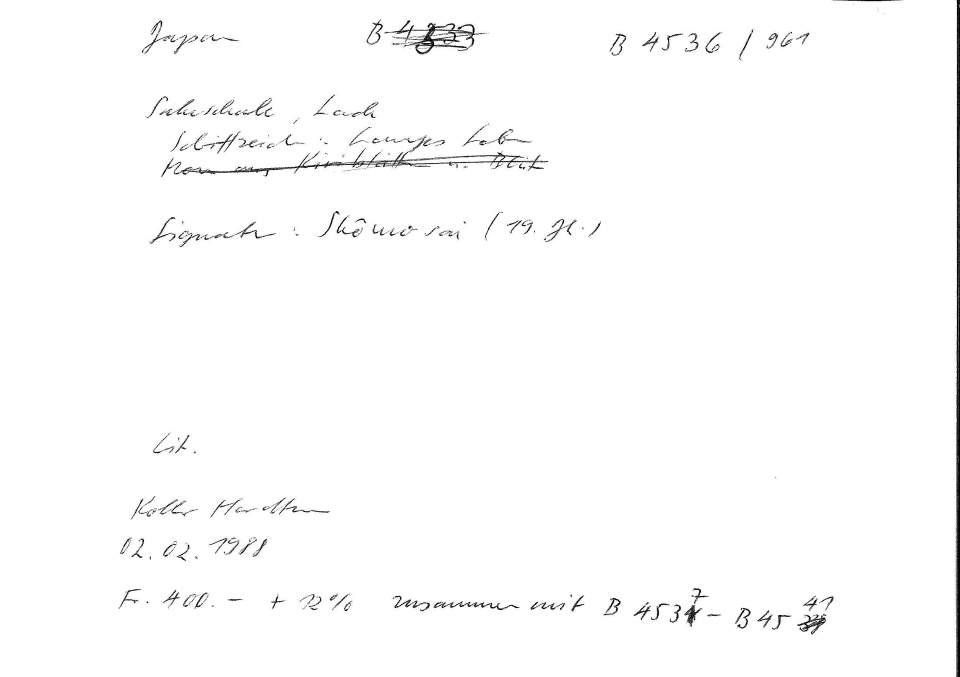 Japan B 4533 B 4536 / 961
Sakeschale, Lack
Schriftzeichen: Langes Leben
Mon aus Kiriblättern u. Blüt
Signatur: Shômosai (19. Jh.)
Lit.
Koller Hardturm
02.02.1988
Fr. 400.- + 12% zusammen mit B 4537 - B 4541